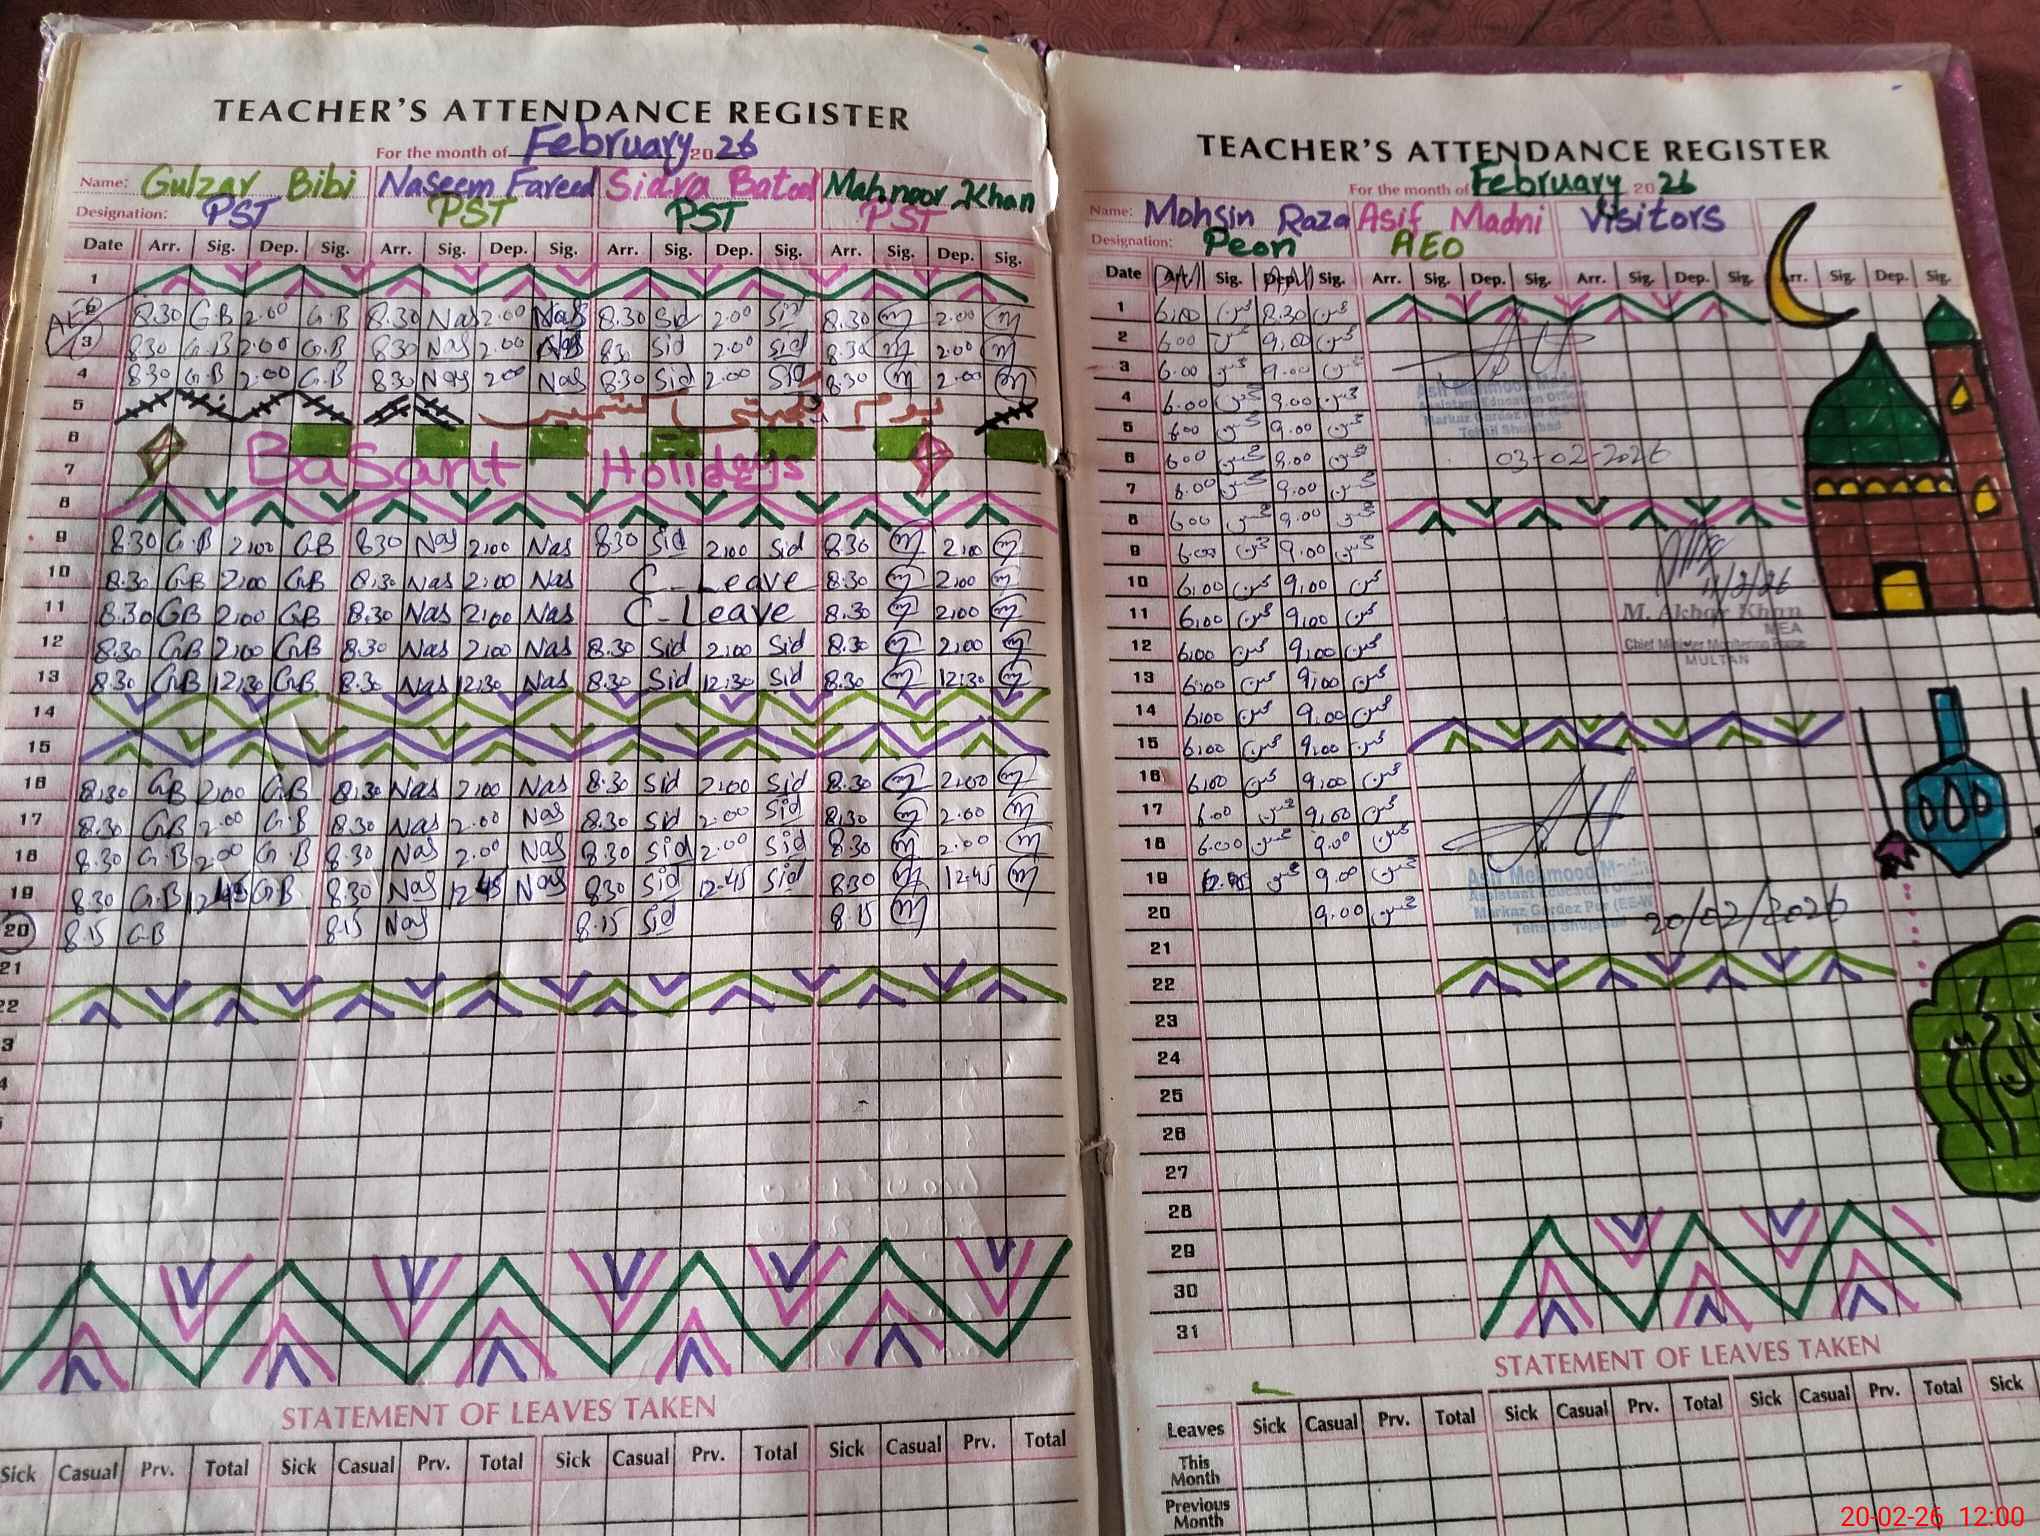 TEACHER'S ATTENDANCE REGISTER
For the month of February 2026
Name: Gulzar Bibi Naseem Fareed Sidra Batool Mahnoor Khan
Designation: PST PST PST PST
Date Arr. Sig. Dep. Sig. Arr. Sig. Dep. Sig. Arr. Sig. Dep. Sig. Arr. Sig. Dep. Sig.
1
2 8.30 G.B 2.00 G.B 8.30 Nas 2.00 Nas 8.30 Sid 2.00 Sid 8.30 m 2.00 m
3 8.30 G.B 2.00 G.B 8.30 Nas 2.00 Nas 8.30 Sid 2.00 Sid 8.30 m 2.00 m
4 8.30 G.B 2.00 G.B 8.30 Nas 2.00 Nas 8.30 Sid 2.00 Sid 8.30 m 2.00 m
5 یوم یکجہتی کشمیر
6
7 Basant Holidays
8
9 8.30 G.B 2.00 GB 8.30 Nas 2.00 Nas 8.30 Sid 2.00 Sid 8.30 m 2.00 m
10 8.30 GB 2.00 GB 8.30 Nas 2.00 Nas C-Leave 8.30 m 2.00 m
11 8.30 GB 2.00 GB 8.30 Nas 2.00 Nas C-Leave 8.30 m 2.00 m
12 8.30 GB 2.00 GB 8.30 Nas 2.00 Nas 8.30 Sid 2.00 Sid 8.30 m 2.00 m
13 8.30 GB 12.30 GB 8.30 Nas 12.30 Nas 8.30 Sid 12.30 Sid 8.30 m 12.30 m
14
15
16 8.30 GB 2.00 GB 8.30 Nas 2.00 Nas 8.30 Sid 2.00 Sid 8.30 m 2.00 m
17 8.30 GB 2.00 G.B 8.30 Nas 2.00 Nas 8.30 Sid 2.00 Sid 8.30 m 2.00 m
18 8.30 G.B 2.00 G.B 8.30 Nas 2.00 Nas 8.30 Sid 2.00 Sid 8.30 m 2.00 m
19 8.30 G.B 12.45 GB 8.30 Nas 12.45 Nas 8.30 Sid 12.45 Sid 8.30 m 12.45 m
20 8.15 GB 8.15 Nas 8.15 Sid 8.15 m
21
22
STATEMENT OF LEAVES TAKEN
Sick Casual Prv. Total Sick Casual Prv. Total Sick Casual Prv. Total Sick Casual Prv. Total
TEACHER'S ATTENDANCE REGISTER
For the month of February 2026
Name: Mohsin Raza Asif Madni Visitors
Designation: Peon AEO
Date Sig. Sig. Arr. Sig. Dep. Sig. Arr. Sig. Dep. Sig. Arr. Sig. Dep. Sig.
1 6.00 8.30
2 6.00 9.00
3 6.00 9.00
4 6.00 9.00
Asif Mehmood Madni
Assistant Education Officer
Markaz Gardez Pur
Tehsil Shujabad
5 6.00 9.00
6 6.00 9.00 03-02-2026
7 6.00 9.00
8 6.00 9.00
9 6.00 9.00
10 6.00 9.00 11/2/26
11 6.00 9.00 M. Akbar Khan
MEA
12 6.00 9.00 Chief Minister Monitoring Force
MULTAN
13 6.00 9.00
14 6.00 9.00
15 6.00 9.00
16 6.00 9.00
17 6.00 9.00
18 6.00 9.00
19 9.00 Asif Mehmood Madni
Assistant Education Officer
20 9.00 Markaz Gardez Pur (EE-W) 20/02/2026
Tehsil Shujabad
21
22
23
24
25
26
27
28
29
30
31
STATEMENT OF LEAVES TAKEN
Leaves Sick Casual Prv. Total Sick Casual Prv. Total Sick Casual Prv. Total Sick
This Month
Previous Month
20-02-26 12:00